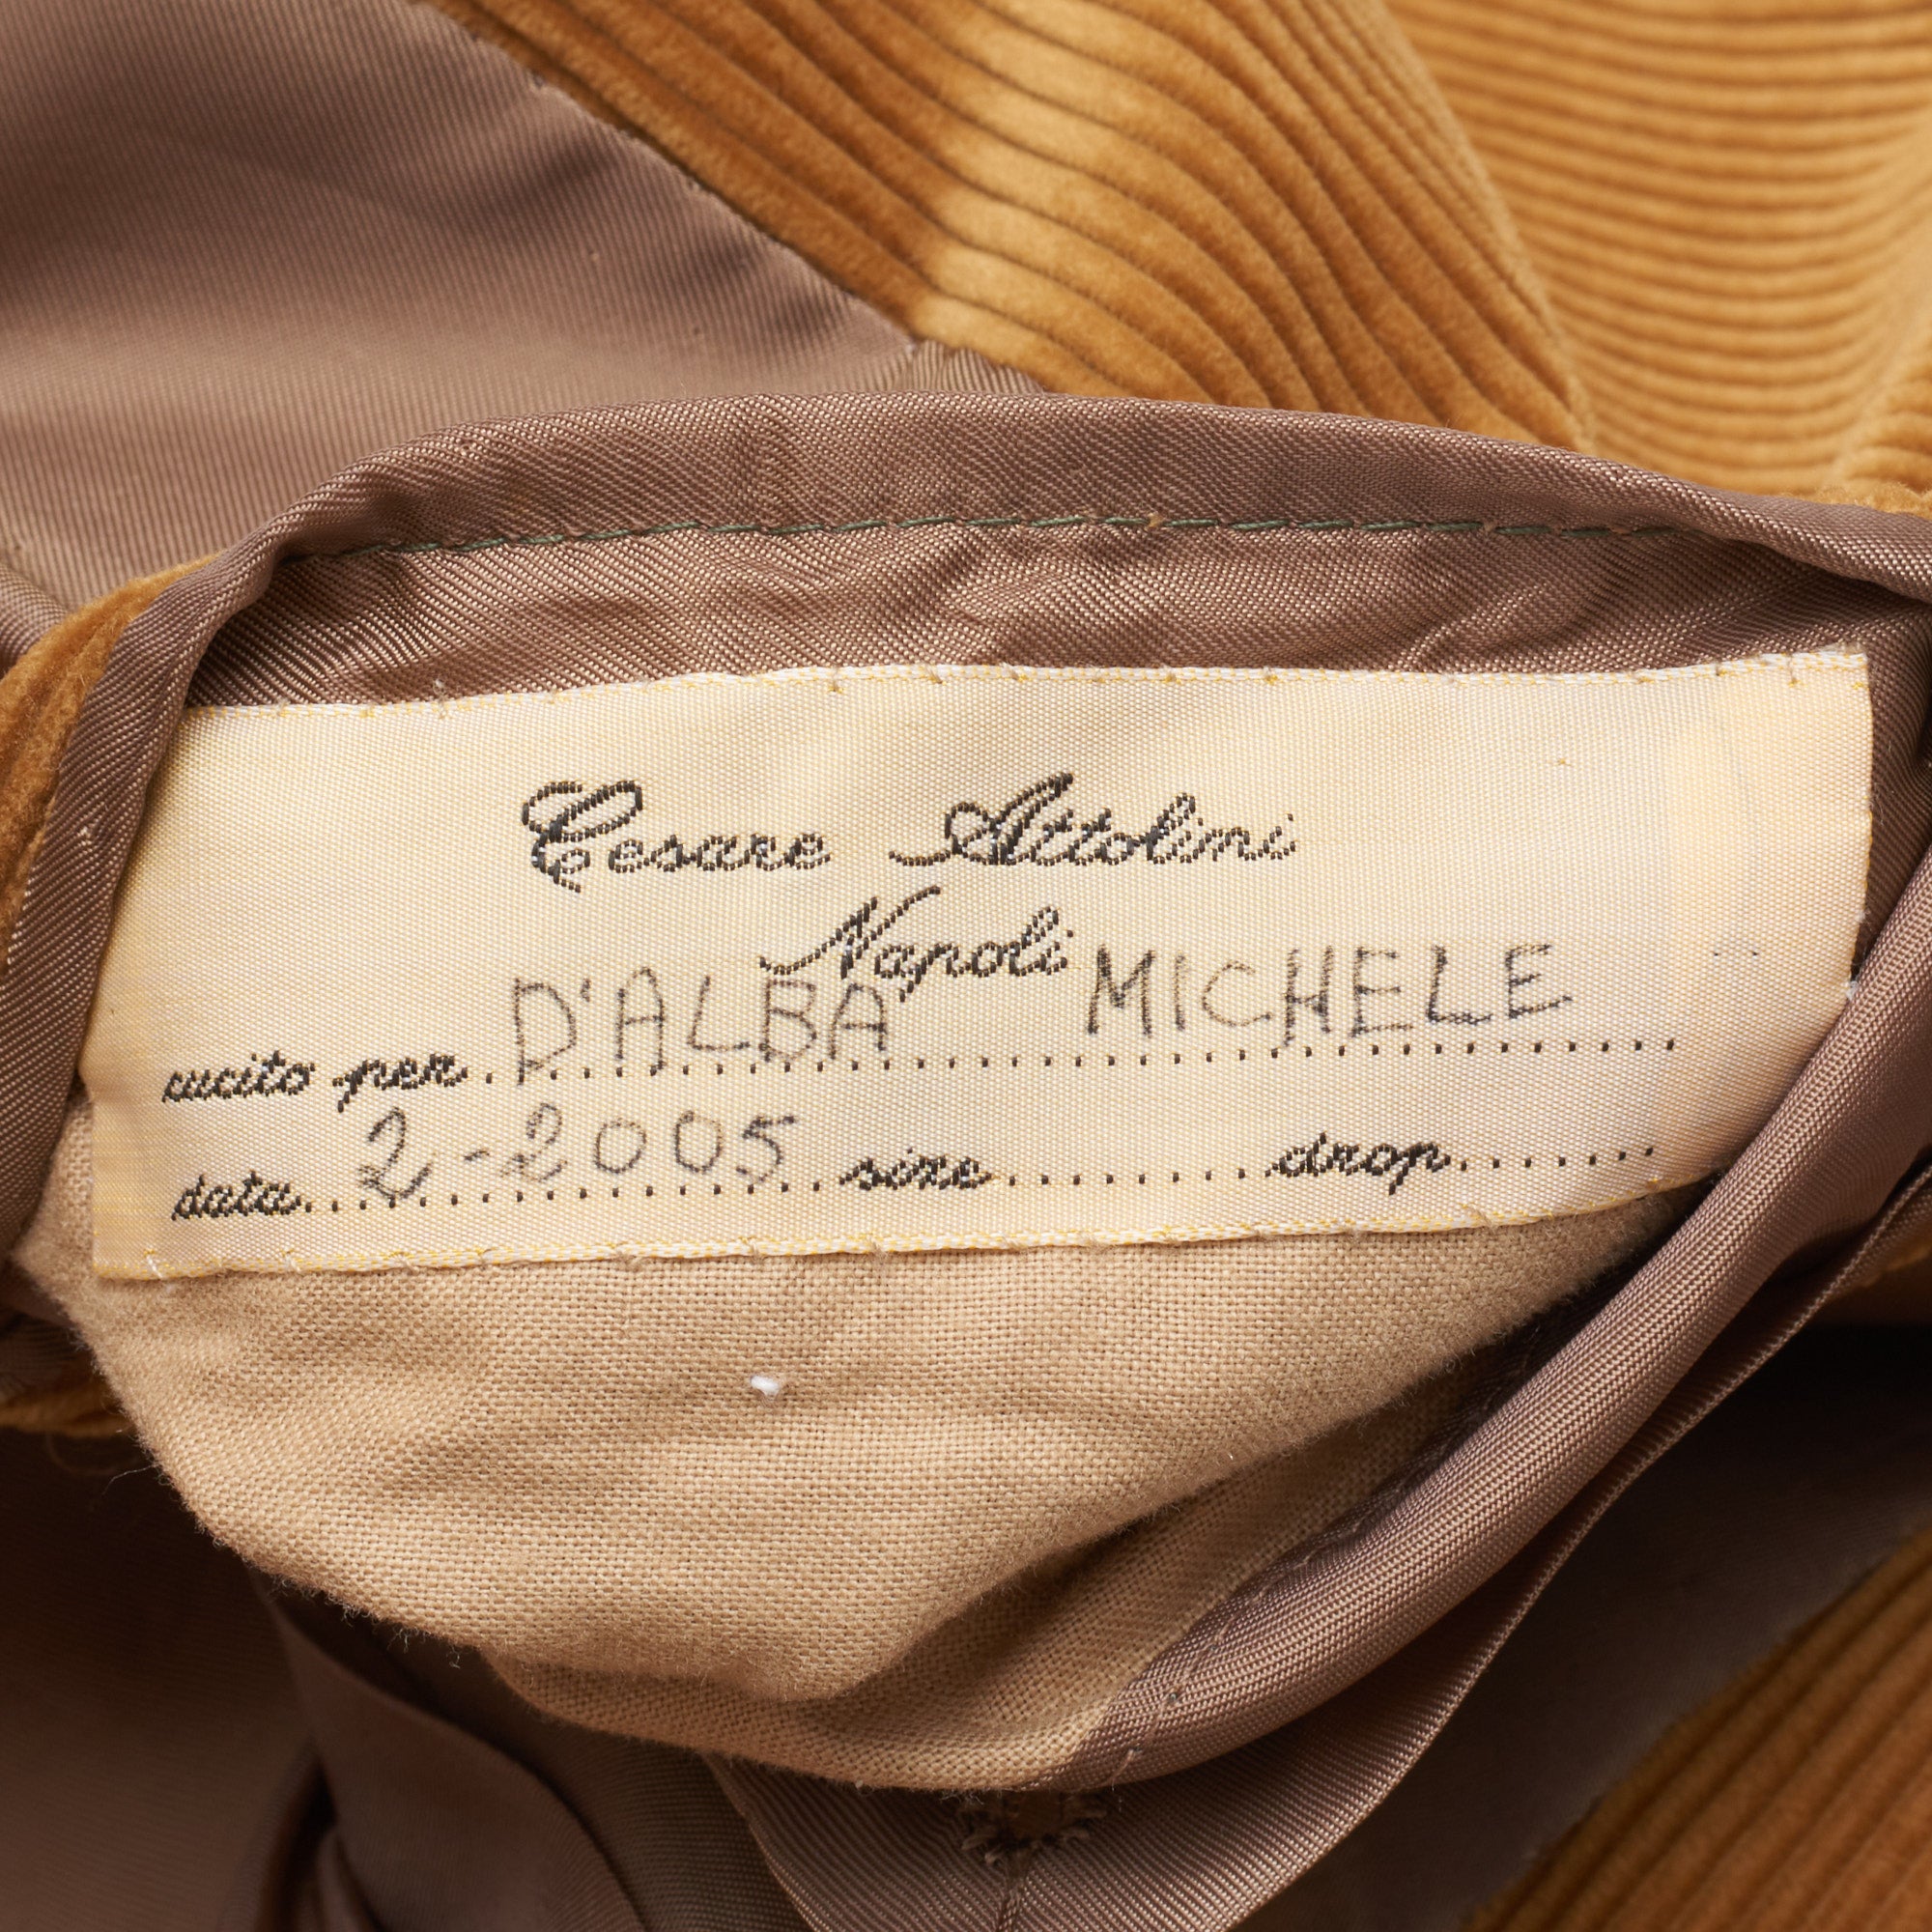 Cesare Attolini
Napoli
cucito per D'ALBA MICHELE
data 2-2005 size drop